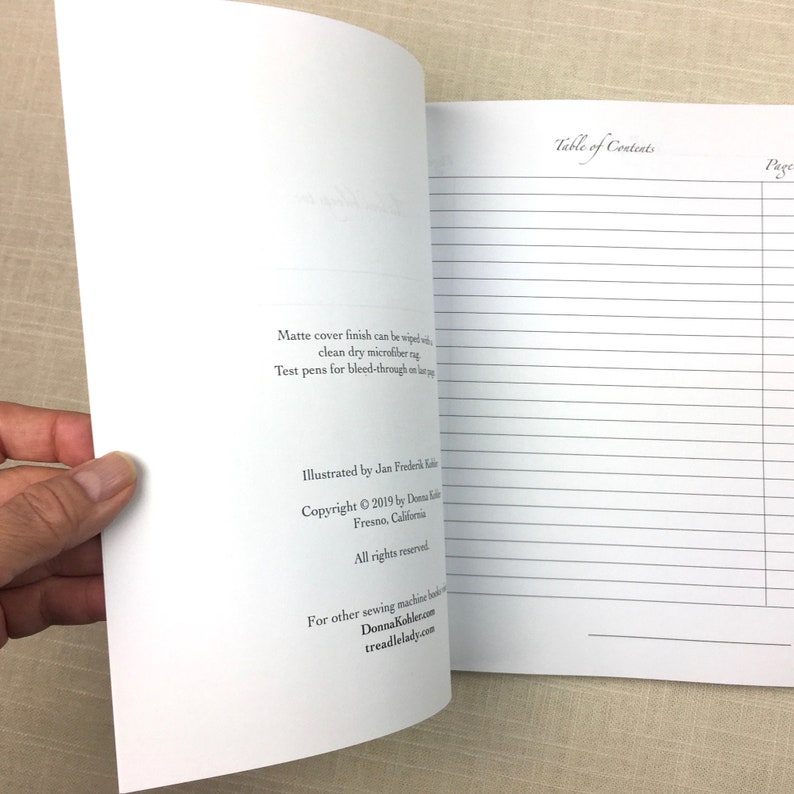 Matte cover finish can be wiped with a
clean dry microfiber rag.
Test pens for bleed-through on last page.
Illustrated by Jan Frederik Kohler
Copyright © 2019 by Donna Kohler
Fresno, California
All rights reserved.
For other sewing machine books
DonnaKohler.com
treadlelady.com
Table of Contents
Page